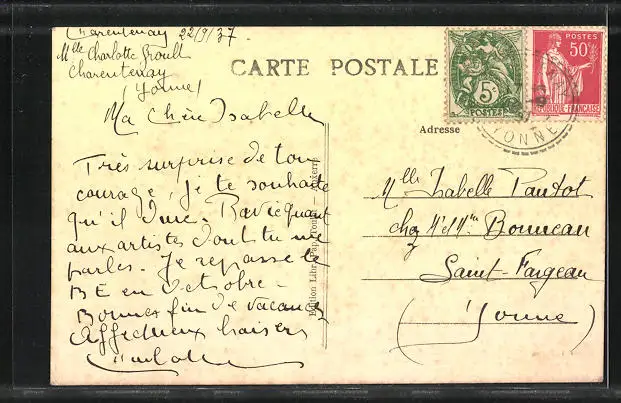 Charentenay 22/9/37.
Mlle Charlotte Groult
Charentenay
(Yonne)
CARTE POSTALE
5c
POSTES
POSTES
50c
RÉPUBLIQUE FRANÇAISE
YONNE
Ma Chère Isabelle
Très surprise de ton
courage, je te souhaite
qu'il dure.
aux artistes dont tu me
parles. Je repasse le
BE en octobre.
Bonnes fin de vacances
Affectueux baisers
Charlotte
Adresse
Mlle Isabelle Pautot
chez Mr et Mme Bonneau
Saint-Fargeau
(Yonne)
Edition Libr. Pap. Auxerre